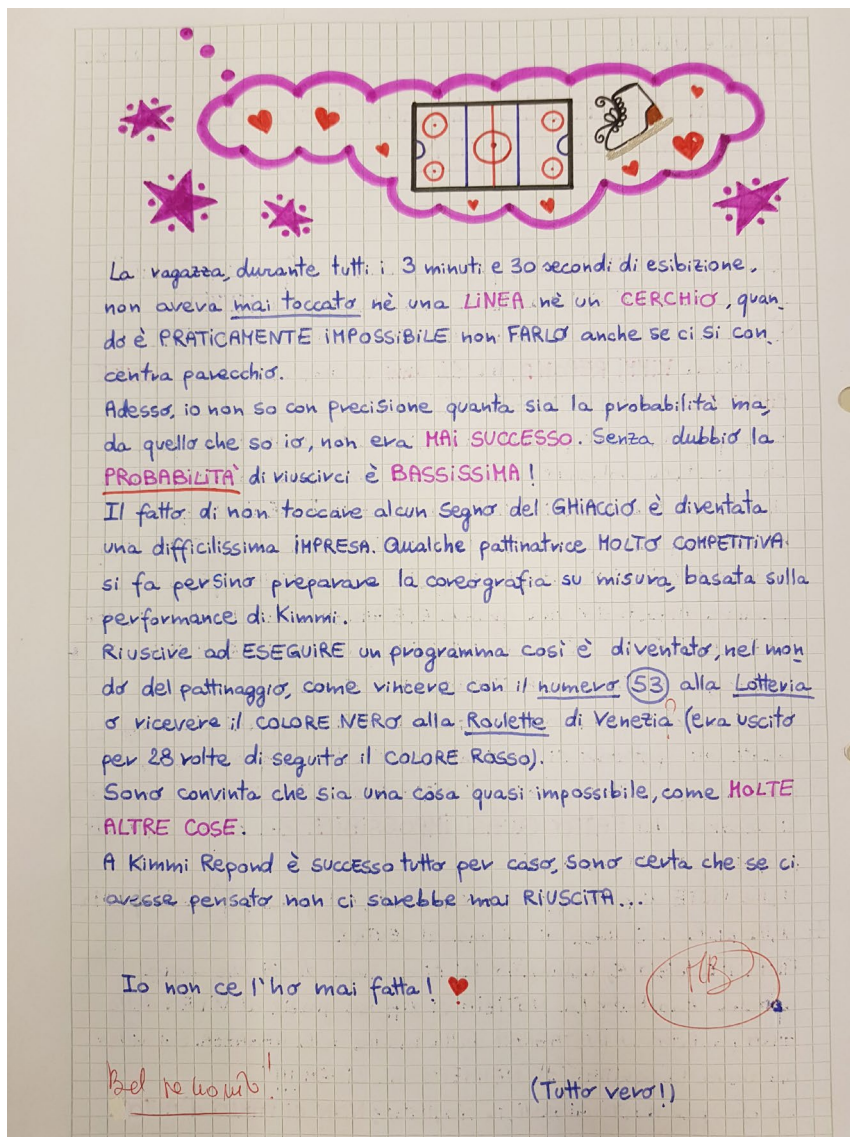 La ragazza, durante tutti i 3 minuti e 30 secondi di esibizione,
non aveva mai toccato nè una LINEA nè un CERCHIO, quan_
do è PRATICAMENTE IMPOSSIBILE non FARLO anche se ci si con_
centra parecchio.
Adesso, io non so con precisione quanta sia la probabilità ma,
da quello che so io, non era MAI SUCCESSO. Senza dubbio la
PROBABILITÀ di riuscirci è BASSISSIMA!
Il fatto di non toccare alcun segno del GHIACCIO è diventata
una difficilissima IMPRESA. Qualche pattinatrice MOLTO COMPETITIVA
si fa persino preparare la coreografia su misura, basata sulla
performance di Kimmi.
Riuscire ad ESEGUIRE un programma così è diventato, nel mon_
do del pattinaggio, come vincere con il numero 53 alla Lotteria
o ricevere il COLORE NERO alla Roulette di Venezia (era uscito
per 28 volte di seguito il COLORE ROSSO).
Sono convinta che sia una cosa quasi impossibile, come MOLTE
ALTRE COSE.
A Kimmi Repond è SUCCESSO tutto per caso, sono certa che se ci
avesse pensato non ci sarebbe mai RIUSCITA...
Io non ce l'ho mai fatta!
MB
Bel
(Tutto vero!)